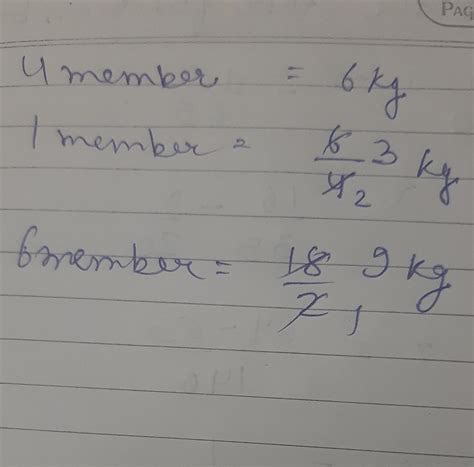 PAG
4 member = 6 kg
1 member = 6/4 3/2 kg
6 member = 18/2 9/1 kg